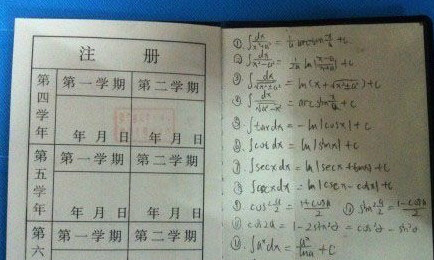 注 册
第四学年 第一学期 第二学期
年 月 日 年 月 日
第五学年 第一学期 第二学期
年 月 日 年 月 日
第六 第一学期 第二学期
①. ∫dx/(x²+a²) = 1/a arctan x/a + C
②. ∫dx/(x²-a²) = 1/2a ln|(x-a)/(x+a)| + C
③. ∫dx/√(x²±a²) = ln(x+√(x²±a²)) + C
④. ∫dx/√(a²-x²) = arcsin x/a + C
⑤. ∫tanxdx = -ln|cosx| + C
⑥. ∫cotdx = ln|sinx| + C
⑦. ∫secxdx = ln|secx+tanx| + C
⑧. ∫cscxdx = ln|cscx-cotx| + C
⑨. cos² = (1+cosα)/2 ⑩. sin² = (1-cosα)/2
⑪ cos2α = 1-2sin²α = cos²α - sin²α
∫aˣdx = aˣ/lna + C